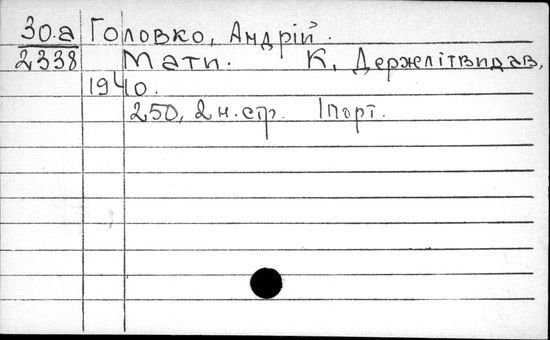 30.а Головко, Андрій.
2338 Мати. К, Держлітвидав,
1940.
250, 2 н. стр. 1 порт.